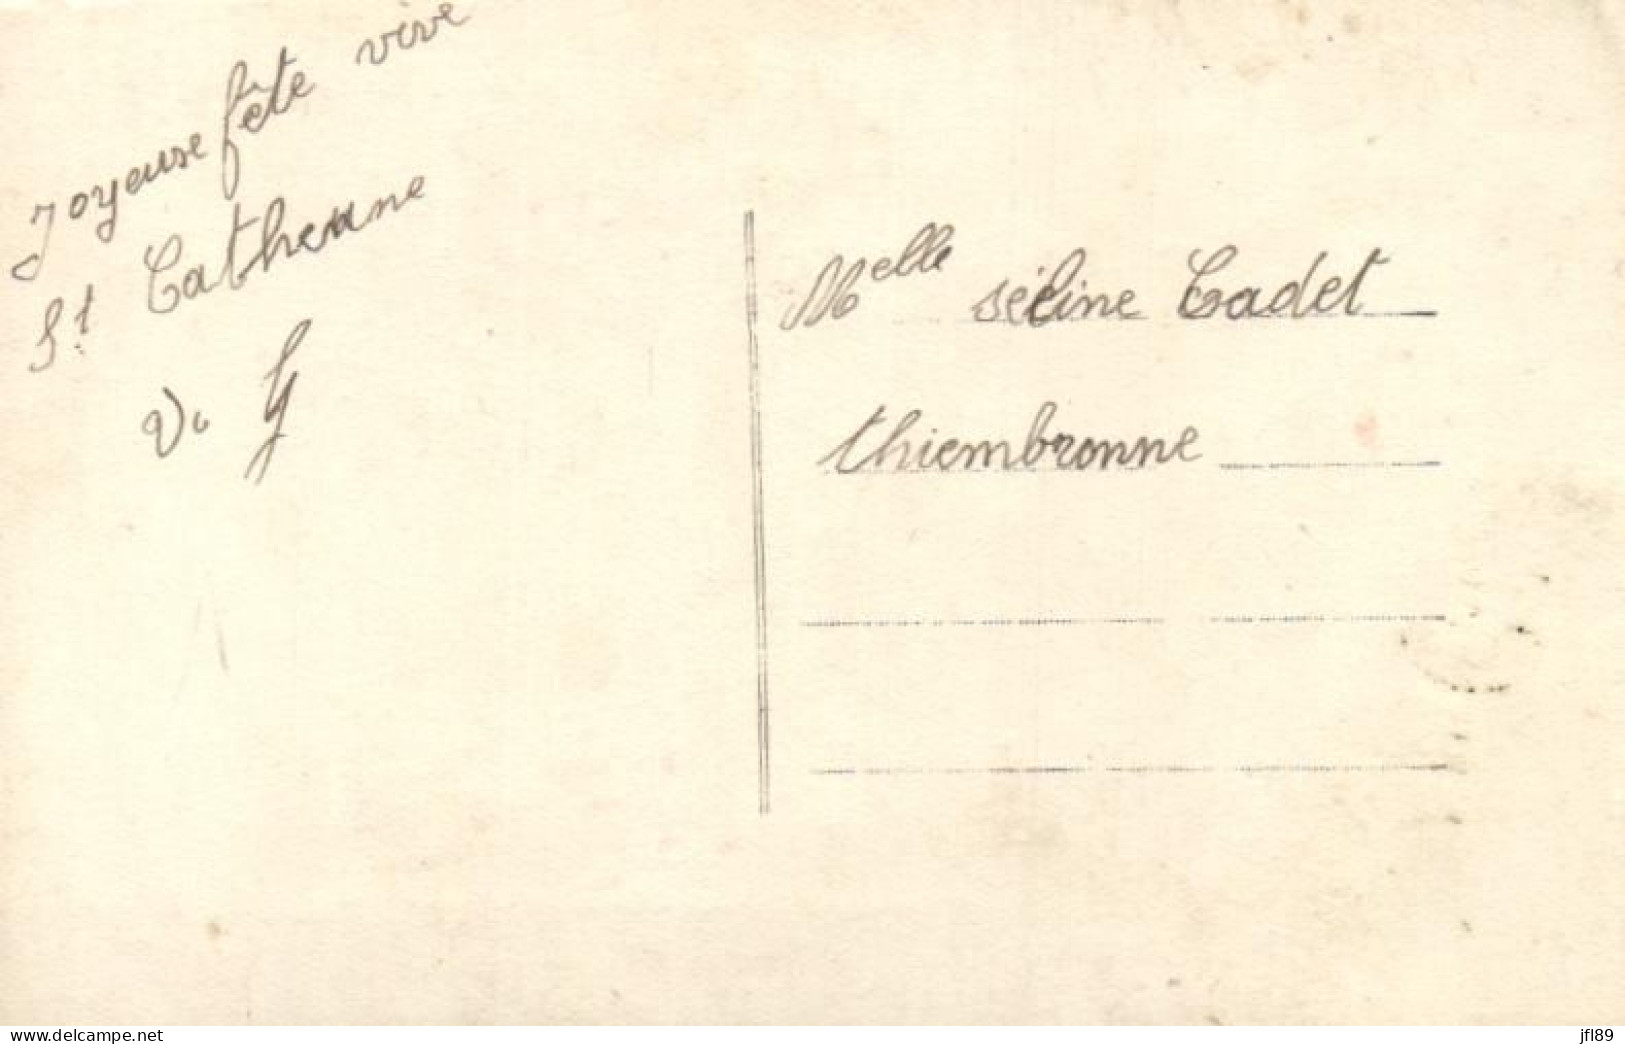 Joyeuse fête vive
St Catherine
V. G
Melle séline Cadet
thiembronne
www.delcampe.net
jfl89